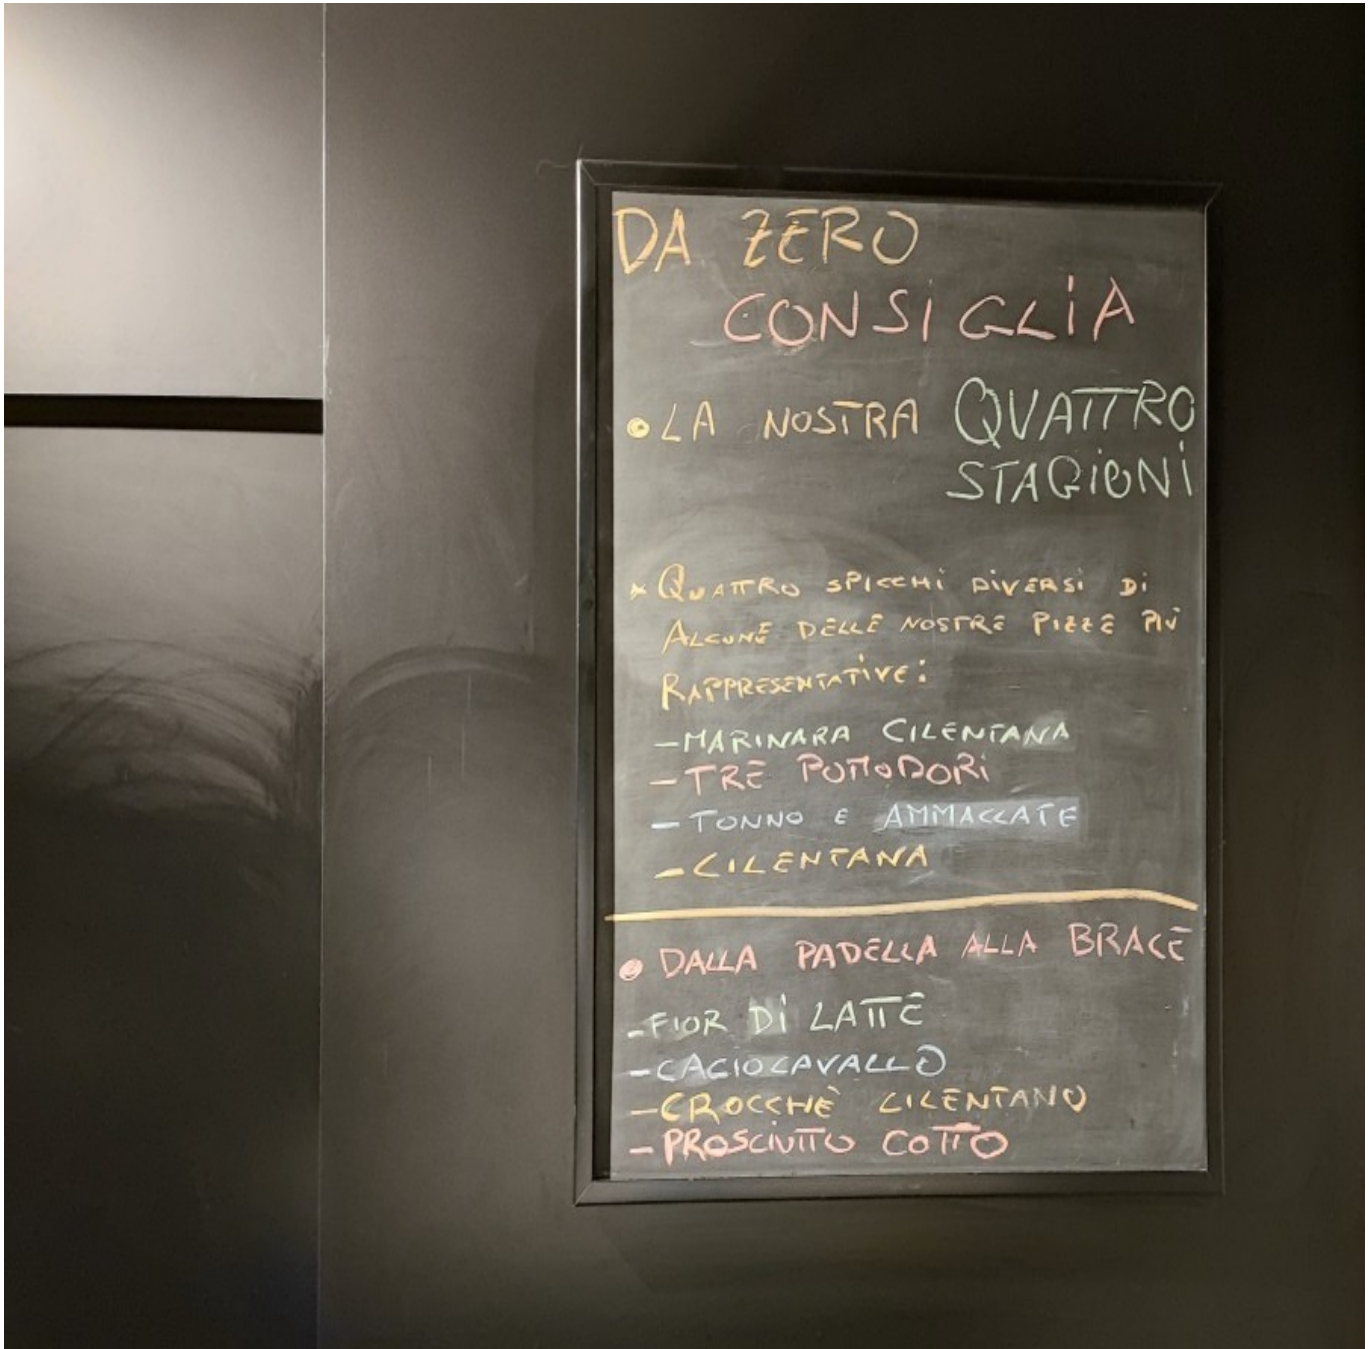 DA ZERO
CONSIGLIA
• LA NOSTRA QUATTRO
STAGIONI
* QUATTRO SPICCHI DIVERSI DI
ALCUNE DELLE NOSTRE PIZZE PIÙ
RAPPRESENTATIVE:
- MARINARA CILENTANA
- TRE POMODORI
- TONNO E AMMACCATE
- CILENTANA
• DALLA PADELLA ALLA BRACE
- FIOR DI LATTE
- CACIOCAVALLO
- CROCCHÈ CILENTANO
- PROSCIUTTO COTTO